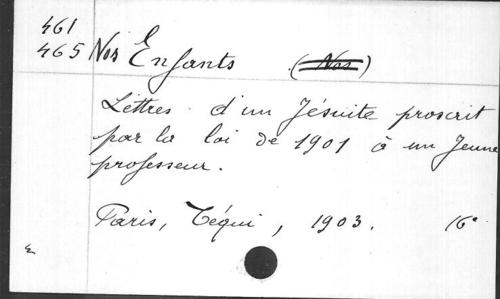 461
465 Nos Enfants. (Nos)
Lettres d'un Jésuite proscrit
par la loi de 1901 à un Jeune
professeur.
Paris, Téqui, 1903. 16°